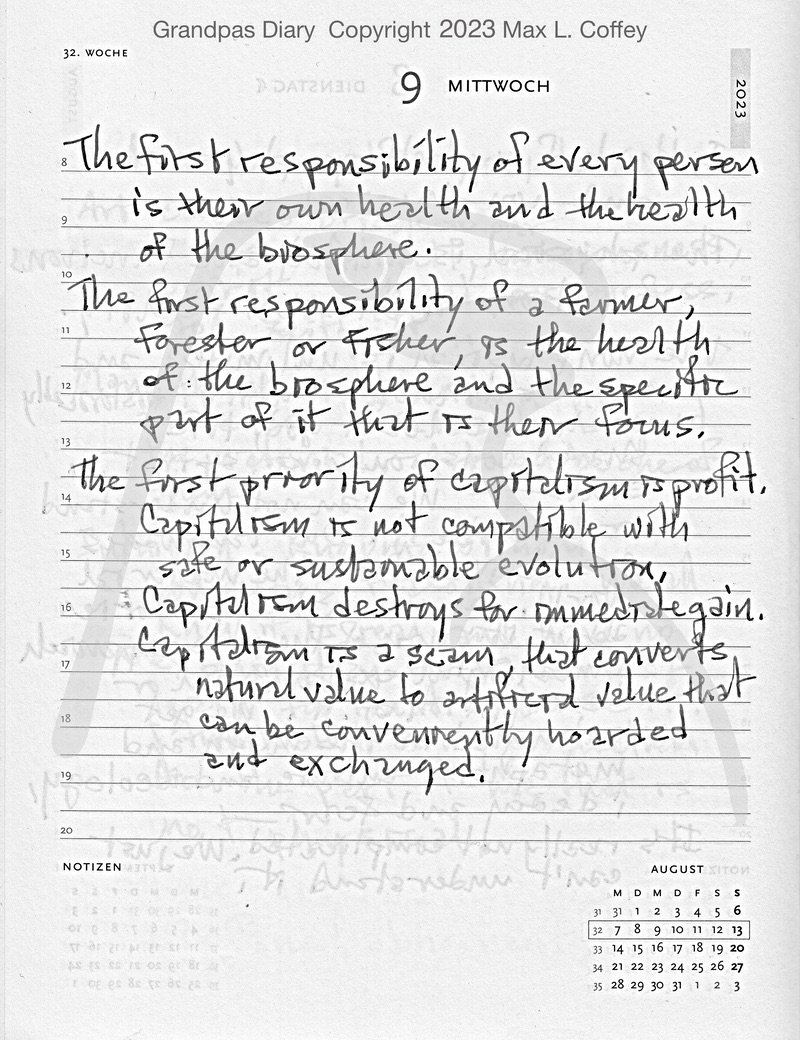 Grandpas Diary Copyright 2023 Max L. Coffey
32. WOCHE
9 MITTWOCH
2023
8 The first responsibility of every person
9 is their own health and the health
of the biosphere.
10 The first responsibility of a farmer,
11 forester or fisher, is the health
12 of the biosphere and the specific
part of it that is their focus.
13
The first priority of capitalism is profit.
14 Capitalism is not compatible with
15 safe or sustainable evolution,
16 Capitalism destroys for immediate gain.
17 Capitalism is a scam, that converts
natural value to artificial value that
18 can be conveniently hoarded
19 and exchanged.
20
NOTIZEN
AUGUST
M D M D F S S
31 31 1 2 3 4 5 6
32 7 8 9 10 11 12 13
33 14 15 16 17 18 19 20
34 21 22 23 24 25 26 27
35 28 29 30 31 1 2 3